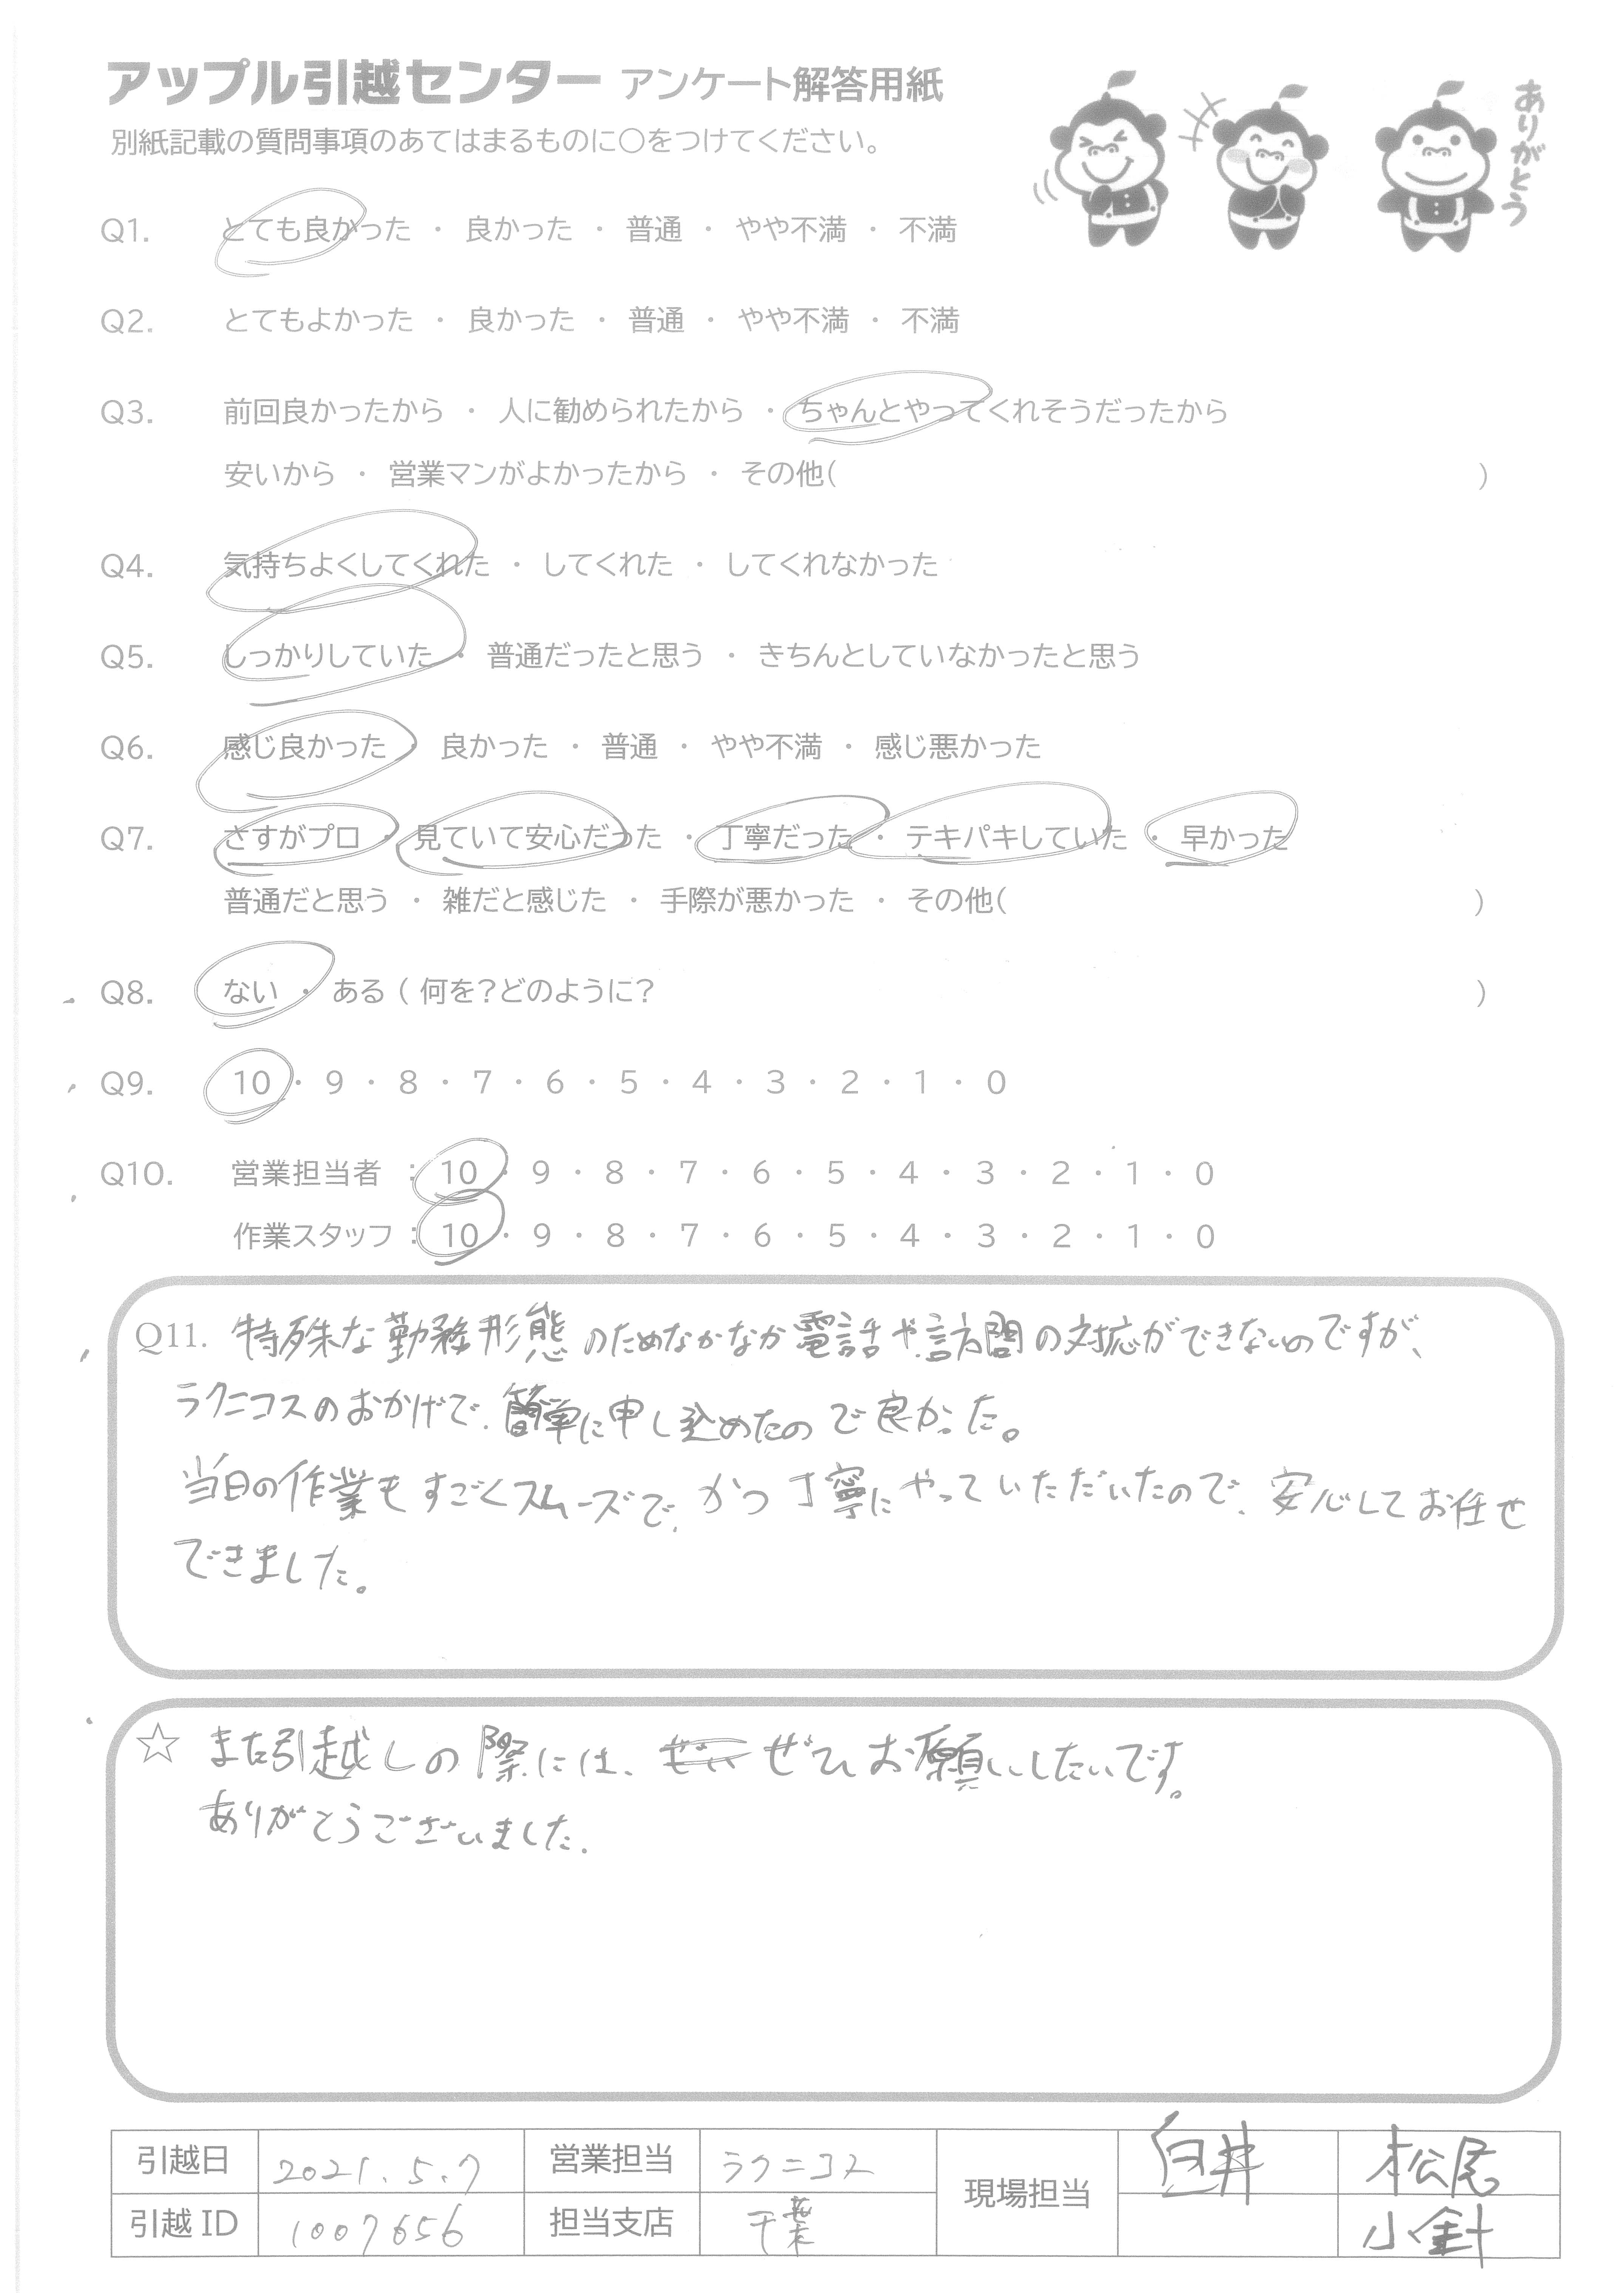 アップル引越センター アンケート解答用紙
別紙記載の質問事項のあてはまるものに○をつけてください。
ありがとう
Q1. とても良かった ・ 良かった ・ 普通 ・ やや不満 ・ 不満
Q2. とてもよかった ・ 良かった ・ 普通 ・ やや不満 ・ 不満
Q3. 前回良かったから ・ 人に勧められたから ・ ちゃんとやってくれそうだったから
安いから ・ 営業マンがよかったから ・ その他( )
Q4. 気持ちよくしてくれた ・ してくれた ・ してくれなかった
Q5. しっかりしていた ・ 普通だったと思う ・ きちんとしていなかったと思う
Q6. 感じ良かった ・ 良かった ・ 普通 ・ やや不満 ・ 感じ悪かった
Q7. さすがプロ ・ 見ていて安心だった ・ 丁寧だった ・ テキパキしていた ・ 早かった
普通だと思う ・ 雑だと感じた ・ 手際が悪かった ・ その他( )
Q8. ない ・ ある ( 何を?どのように? )
Q9. 10 ・ 9 ・ 8 ・ 7 ・ 6 ・ 5 ・ 4 ・ 3 ・ 2 ・ 1 ・ 0
Q10. 営業担当者 : 10 ・ 9 ・ 8 ・ 7 ・ 6 ・ 5 ・ 4 ・ 3 ・ 2 ・ 1 ・ 0
作業スタッフ : 10 ・ 9 ・ 8 ・ 7 ・ 6 ・ 5 ・ 4 ・ 3 ・ 2 ・ 1 ・ 0
Q11. 特殊な勤務形態のためなかなか電話や訪問の対応ができないのですが、
ラクニコスのおかげで、簡単に申し込めたので良かった。
当日の作業もすごくスムーズで、かつ丁寧にやっていただいたので、安心してお任せ
できました。
☆ また引越しの際には、ぜひお願いしたいです。
ありがとうございました。
引越日 2021.5.7 営業担当 ラクニコス 現場担当 白井 松尾
引越ID 1007656 担当支店 千葉 小針